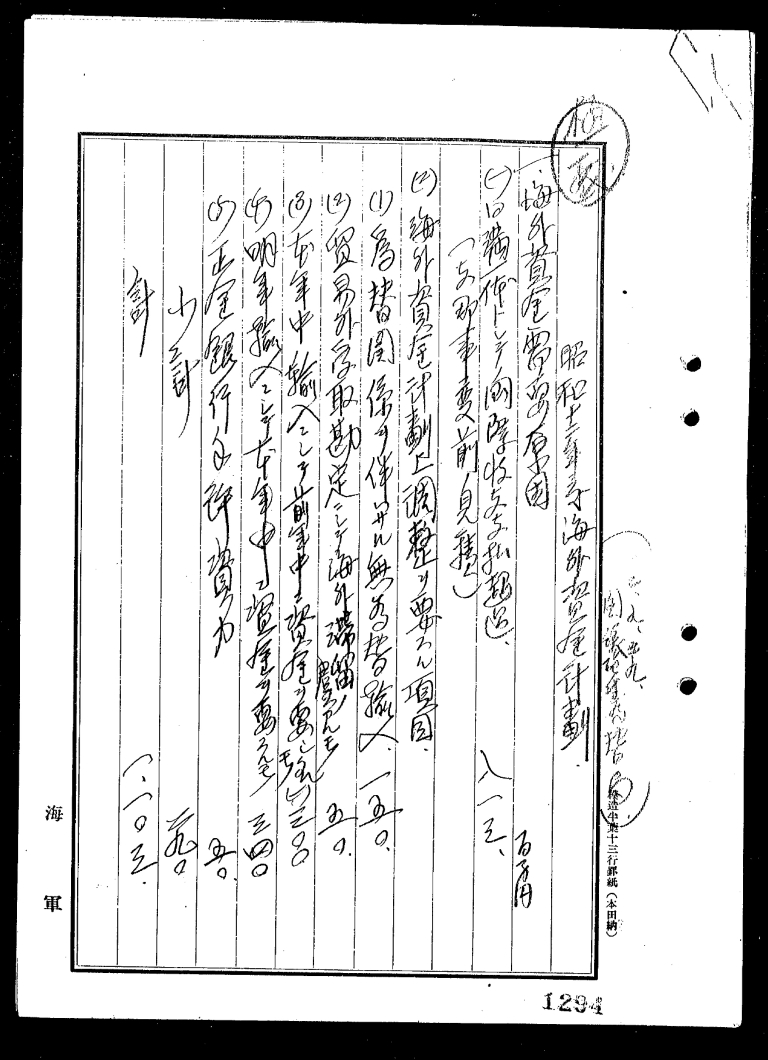 極秘
昭和十二年度海外資金計劃
一、海外資金需要原因
百万円
(一)日満一体トシテノ国際収支支払超過、 八一三、
(支那事変前見積)
(二)海外資金計劃上調整ヲ要スル項目、
(1)為替関係ヲ伴ハザル無為替輸入、 一五〇、
(2)貿易外受取勘定ニシテ海外滞留ノ虞アルモノ 五〇、
(3)本年中輸入ニシテ前年中ニ資金ヲ要シタルモノ (-)三〇〇
(4)明年輸入ニシテ本年中ニ資金ヲ要スルモノ 三四〇
(5)正金銀行 資力 五〇、
小計 二九〇
計 一、一〇三、
海軍
十三行罫紙(本田納)
1294